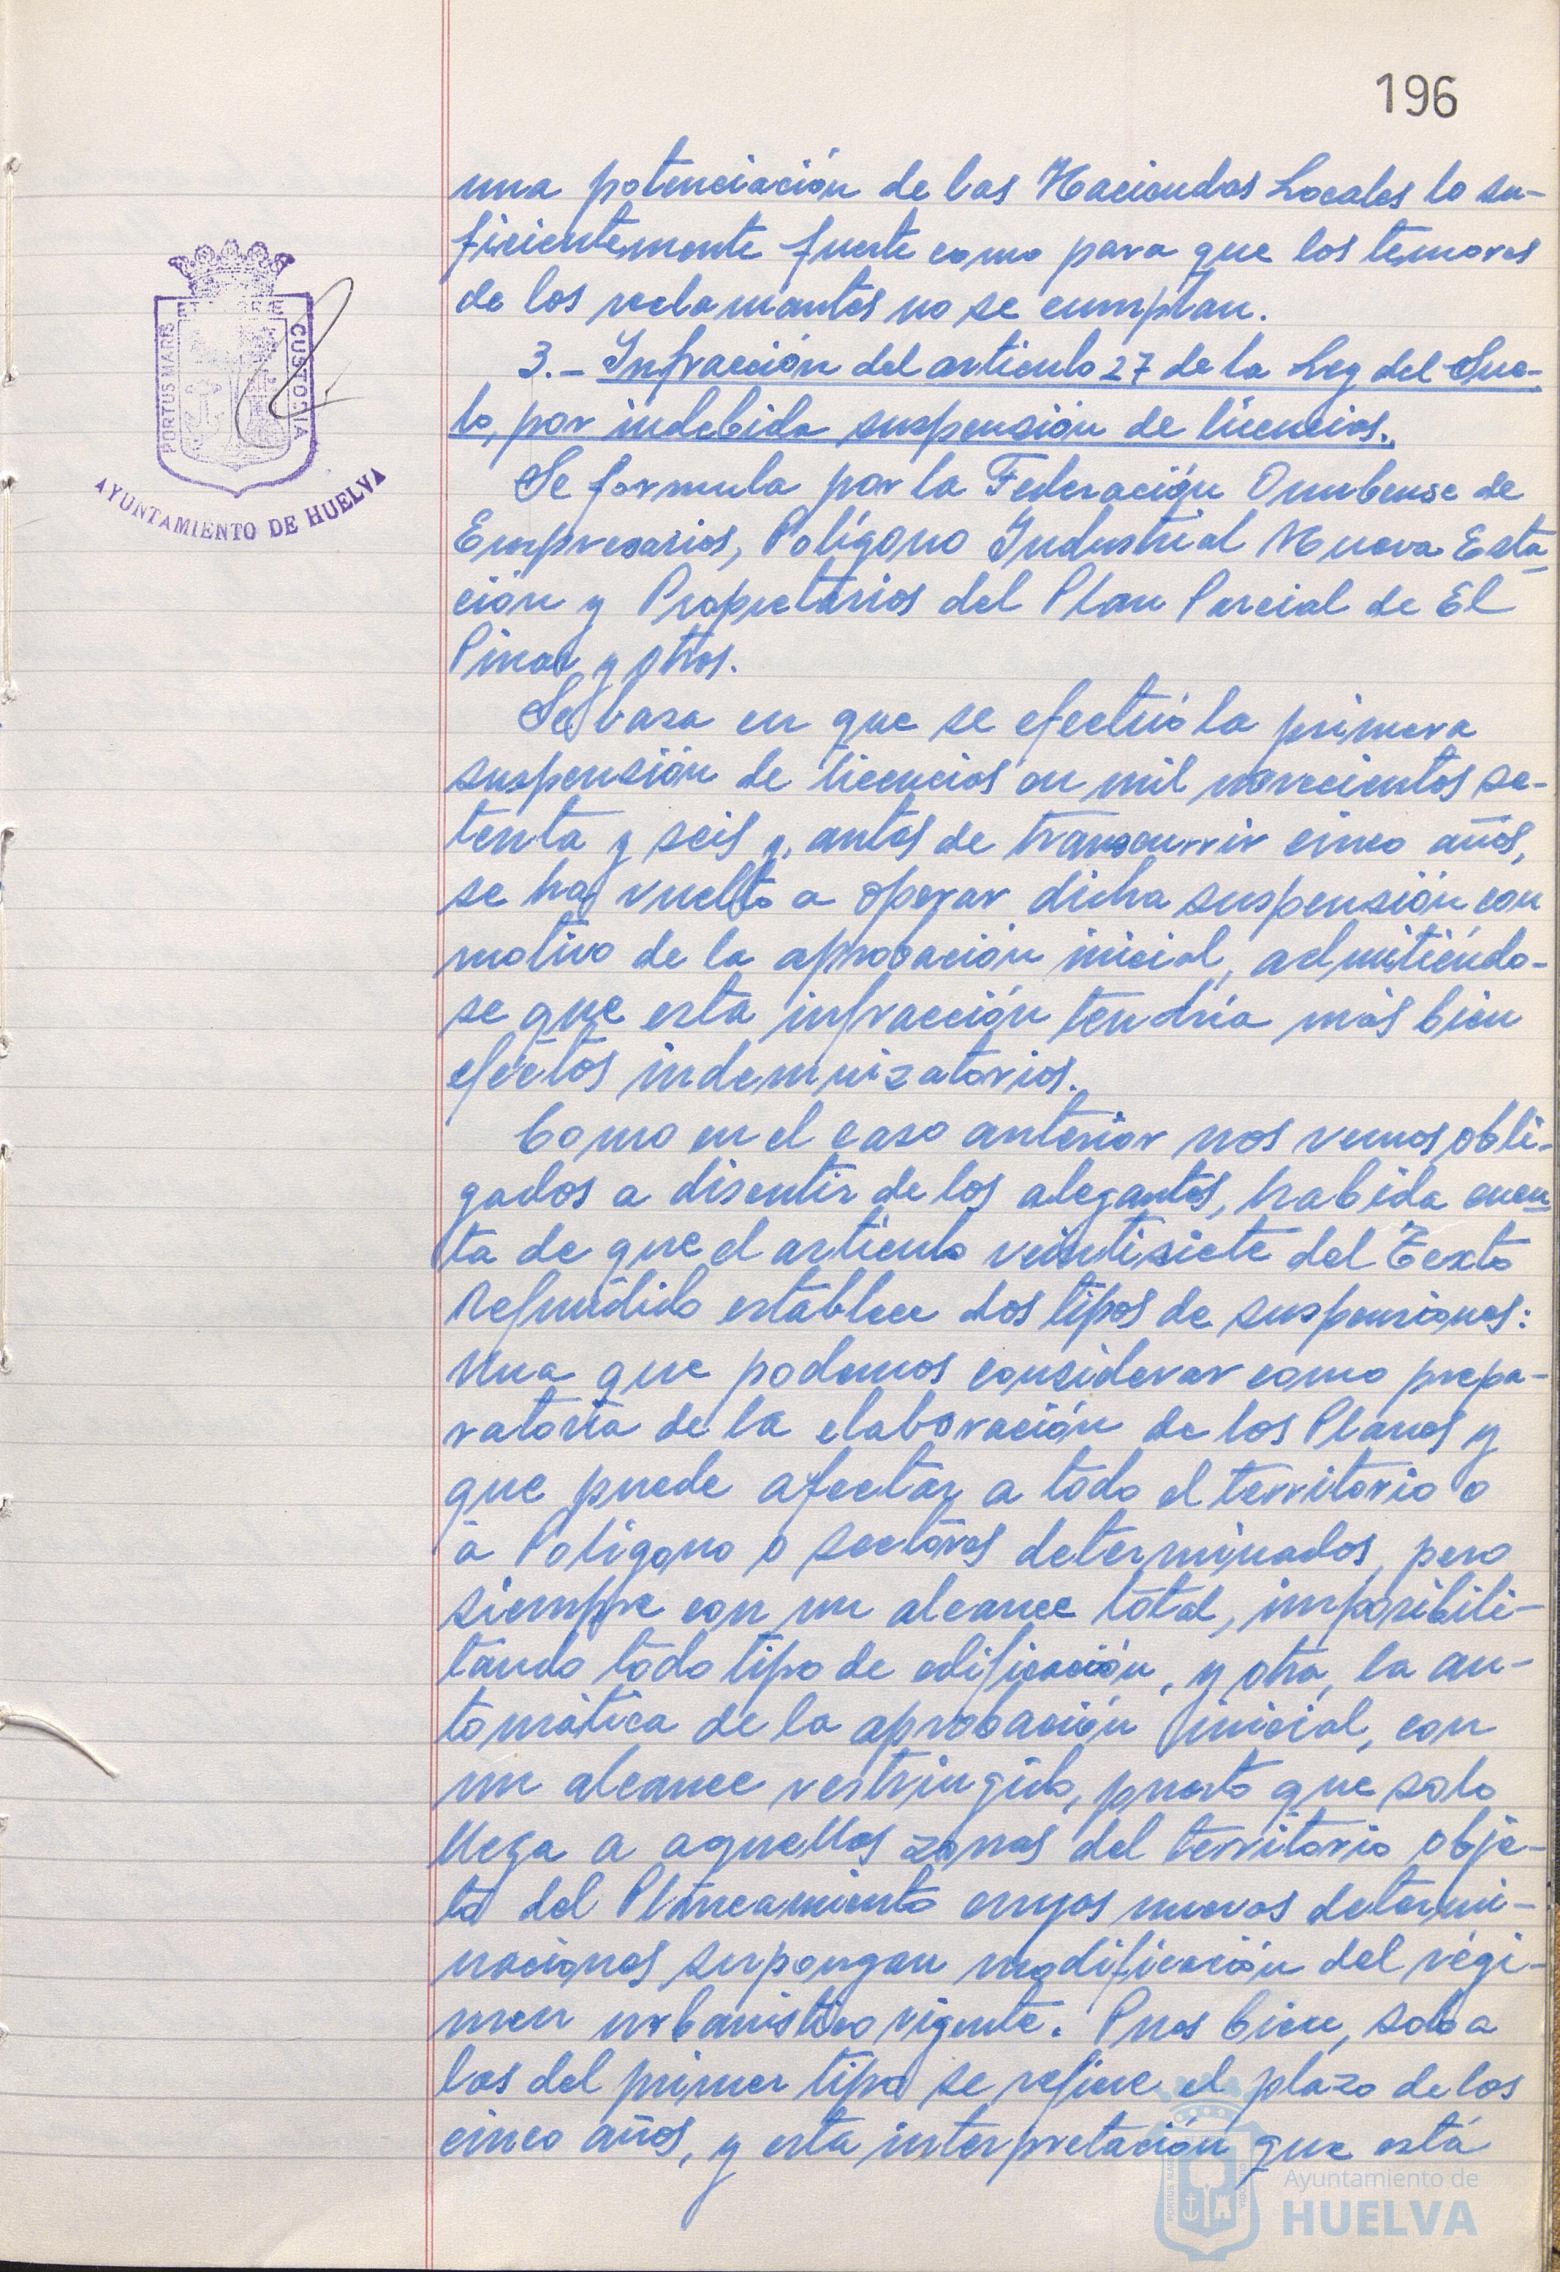 196
una potenciación de las Haciendas Locales lo su-
ficientemente fuerte como para que los temores
de los reclamantes no se cumplan.
3.- Infracción del articulo 27 de la Ley del Sue-
lo, por indebida suspensión de licencias.
Se formula por la Federación Onubense de
Empresarios, Polígono Industrial Nueva Esta
ción y Propietarios del Plan Parcial de El
Pinar y otros.
Se basa en que se efectuó la primera
suspensión de licencias en mil novecientos se-
tenta y seis y, antes de transcurrir cinco años,
se ha vuelto a operar dicha suspensión con
motivo de la aprobación inicial, admitiéndo-
se que esta infracción tendría más bien
efectos indemnizatorios.
Como en el caso anterior nos vemos obli-
gados a disentir de los alegantes, habida cuen
ta de que el artículo veintisiete del Texto
Refundido establece dos tipos de suspensiones:
Una que podemos considerar como prepa-
ratoria de la elaboración de los Planes y
que puede afectar a todo el territorio o
a Polígono o sectores determinados, pero
siempre con un alcance total, imposibili-
tando todo tipo de edificación, y otra, la au-
tomática de la aprobación inicial, con
un alcance restringido, puesto que solo
llega a aquellas zonas del territorio obje-
to del Planeamiento cuyas nuevas determi-
naciones supongan modificación del régi-
men urbanístico vigente. Pues bien, solo a
las del primer tipo se refiere el plazo de los
cinco años, y esta interpretación que está
PORTUS MARIS
CUSTODIA
AYUNTAMIENTO DE HUELVA
Ayuntamiento de
HUELVA